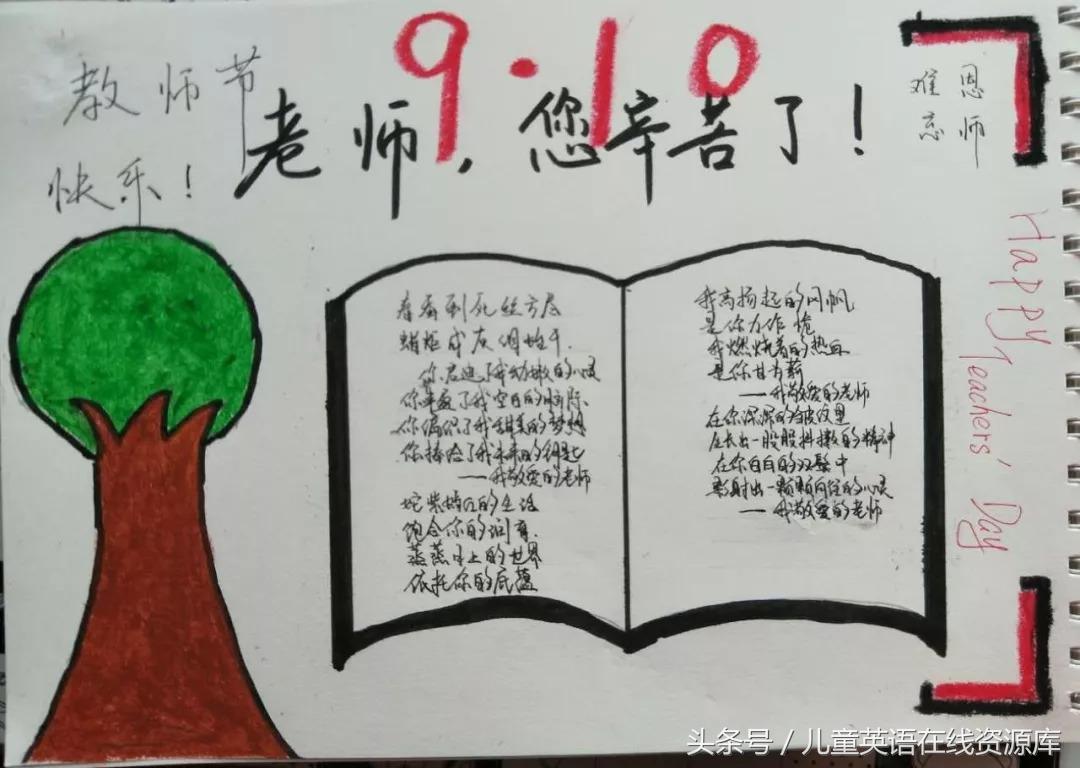 9·10
教师节
快乐！
老师，您辛苦了！
恩师
难忘
Happy Teachers' Day
春蚕到死丝方尽
蜡炬成灰泪始干.
你启迪了我幼嫩的心灵
你丰盈了我空白的脑际.
你编织了我甜美的梦想
你捧给了我未来的钥匙
——我敬爱的老师
的生活
饱含你的润育.
蒸蒸日上的世界
依托你的底蕴
我高扬起的风帆
是你为作桅
我燃烧着的热血
是你甘为薪
——我敬爱的老师
在你深深的皱纹里
生长出一股股抖擞的精神
在你白白的双鬓中
影射出一颗颗向往的心灵
——我敬爱的老师
头条号 / 儿童英语在线资源库